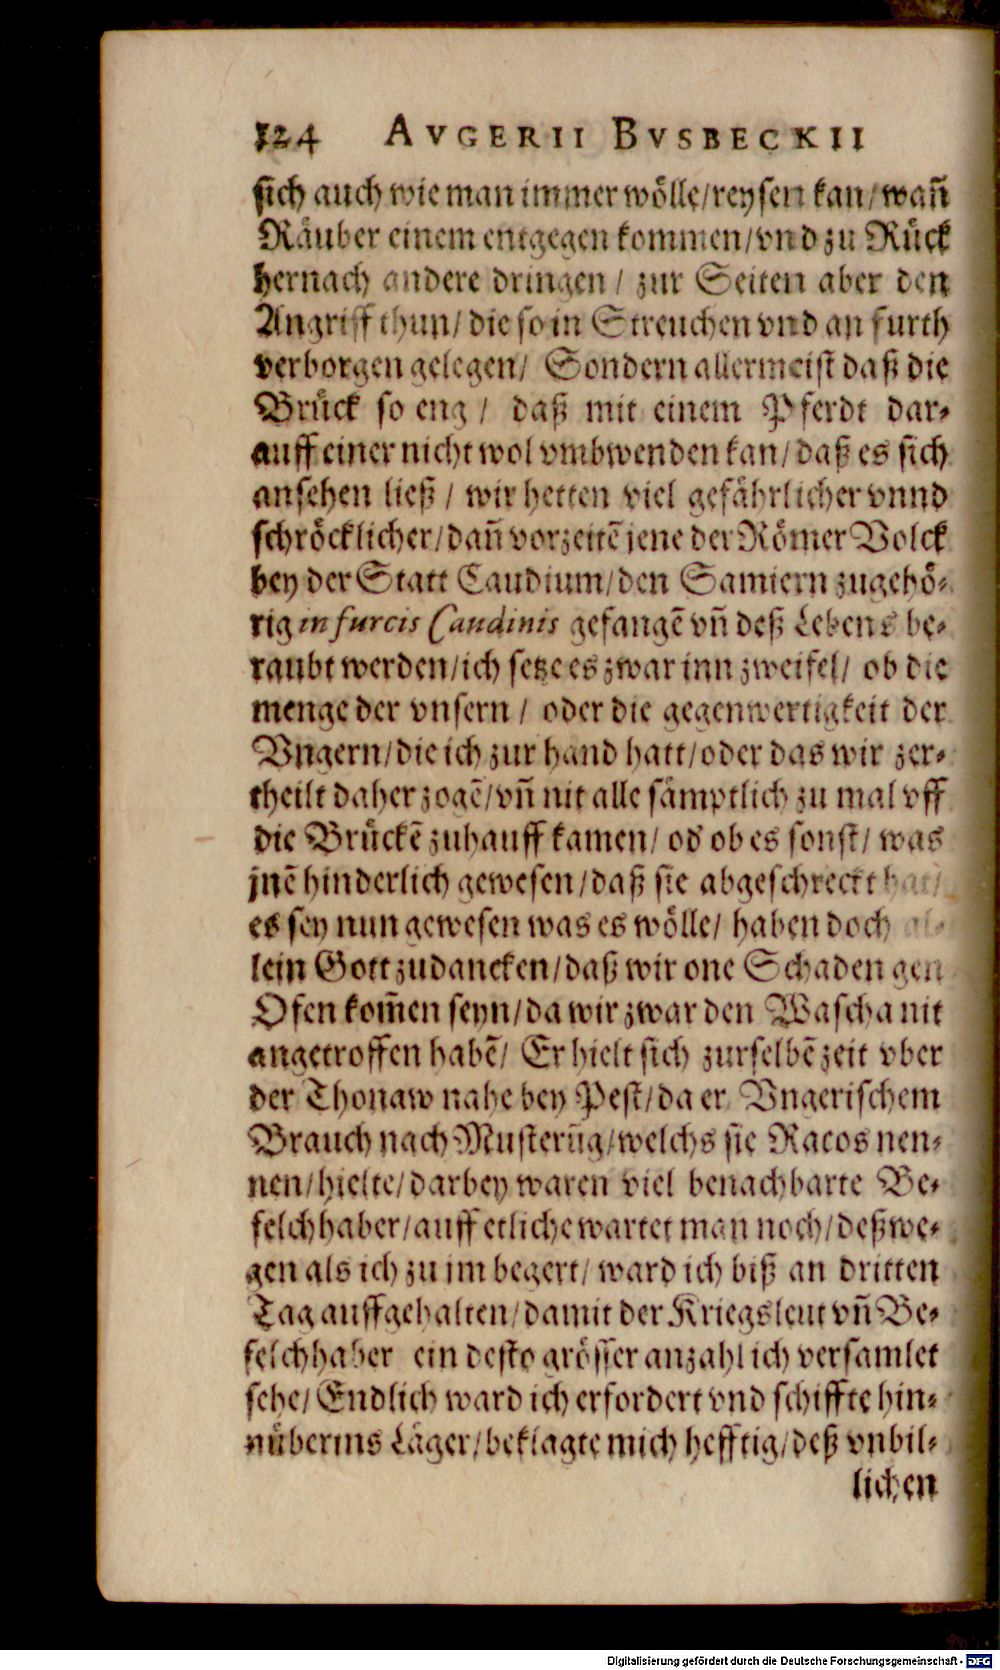 124 AVGERII BVSBECKII
sich auch wie man immer wölle/reysen kan/wañ
Räuber einem entgegen kommen/vnd zu Rück
hernach andere dringen/ zur Seiten aber den
Angriff thun/die so in Streuchen vnd an furth
verborgen gelegen/ Sondern allermeist daß die
Brück so eng/ daß mit einem Pferdt dar-
auff einer nicht wol vmbwenden kan/daß es sich
ansehen ließ/ wir hetten viel gefährlicher vnnd
schröcklicher/dañ vorzeitē jene der Römer Volck
bey der Statt Caudium/den Samiern zugehö-
rig in furcis Caudinis gefangē vñ deß Lebens be-
raubt werden/ich setze es zwar inn zweifel/ ob die
menge der vnsern/ oder die gegenwertigkeit der
Vngern/die ich zur hand hatt/oder das wir zer-
theilt daher zogē/vñ nit alle sämptlich zu mal vff
die Brückē zuhauff kamen/ od ob es sonst/ was
jnē hinderlich gewesen/daß sie abgeschreckt hat/
es sey nun gewesen was es wölle/ haben doch al-
lein Gott zudancken/daß wir one Schaden gen
Ofen kom̄en seyn/da wir zwar den Wascha nit
angetroffen habē/ Er hielt sich zurselbē zeit vber
der Thonaw nahe bey Pest/da er Vngerischem
Brauch nach Musterūg/welchs sie Racos nen-
nen/hielte/darbey waren viel benachbarte Be-
felchhaber/auff etliche wartet man noch/deßwe-
gen als ich zu jm begert/ ward ich biß an dritten
Tag auffgehalten/damit der Kriegsleut vñ Be-
felchhaber ein desto grösser anzahl ich versamlet
sehe/Endlich ward ich erfordert vnd schiffte hin-
nüberins Läger/beklagte mich hefftig/deß vnbil-
lichen
Digitalisierung gefördert durch die Deutsche Forschungsgemeinschaft - DFG